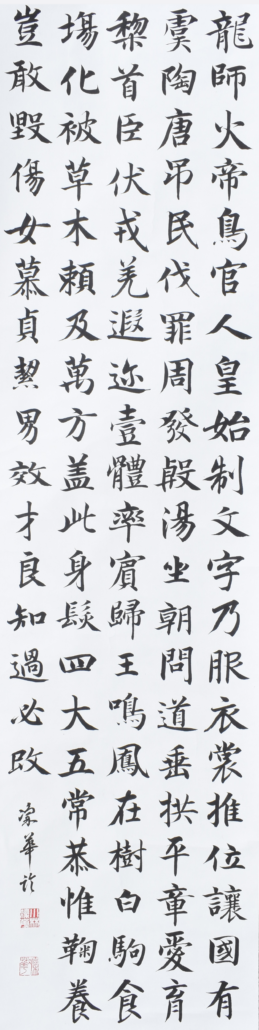 龍師火帝鳥官人皇始制文字乃服衣裳推位讓國有
虞陶唐吊民伐罪周發殷湯坐朝問道垂拱平章愛育
黎首臣伏戎羌遐迩壹體率賓歸王鳴鳳在樹白駒食
場化被草木賴及萬方盖此身髮四大五常恭惟鞠養
豈敢毀傷女慕貞絜男效才良知過必改
家華